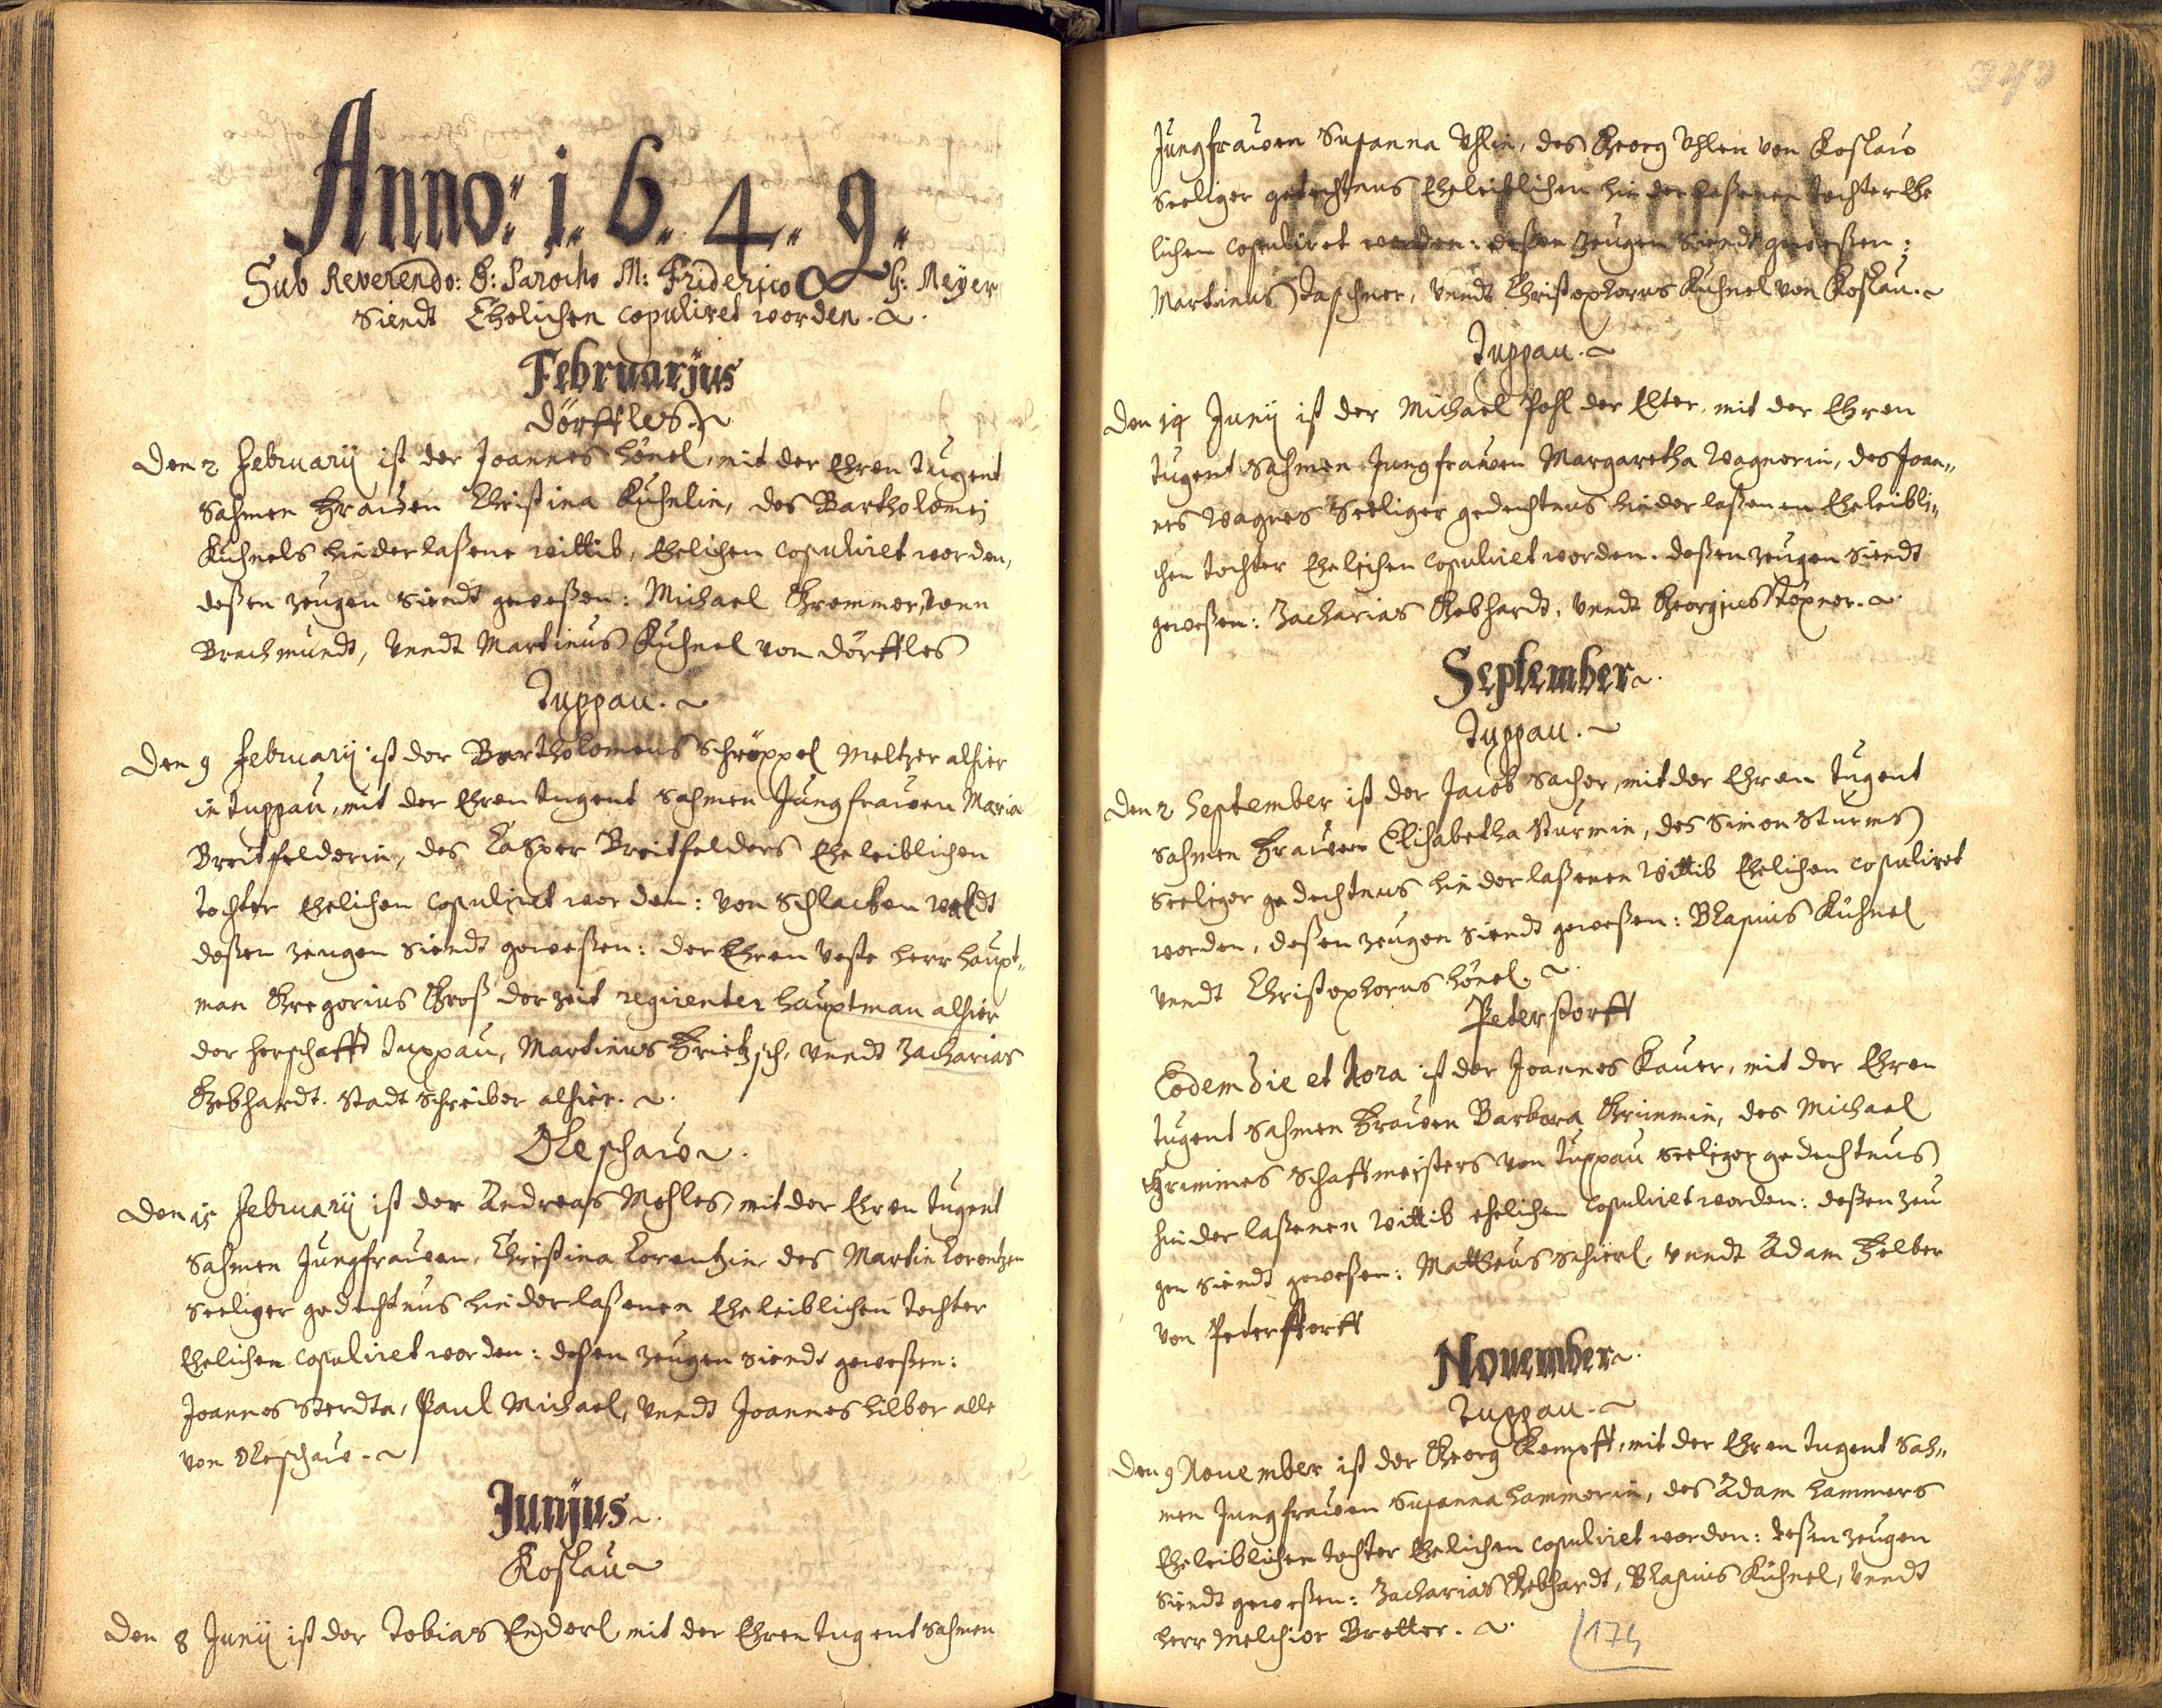 Anno: 1. 6. 4. 9.
Sub Reverendo: D: Parocho M: Friderico G: Meyer
Siendt Ehelichen copuliret worden.
Februarijus
Dörffles
Den 2 Februarij ist der Joannes Hönel, mit der Ehren tugent
Sahmen Frawen Christina Kühnlin, des Bartholomej
Kühnels hinderlaßene wittib, Ehelichen copuliret worden,
deßen zeugen Siendt geweßen: Michael Grommer, vonn
Brachmundt, vnndt Martinus Kühnel von Dörffles
Tuppau.
Den 9 Februarij ist der Bartholomeus Schröppel Meltzer alhier
in Tuppau, mit der Ehren tugent Sahmen Jungfrawen Maria
Breitfelderin, des Casper Breitfelders Eheleiblichen
tochter Ehelichen copuliret worden: von Schlacken waldt
deßen zeugen Siendt geweßen: der Ehren Veste Herr Haupt„
man Gregorius Groß der zeit regirenter Hauptman alhier
der herschafft Tuppau, Martinus Frietzsch, vnndt Zacharias
Gebhardt. Stadt Schreiber alhier.
Oleschaw.
Den 15 Februarij ist der Andreas Mohles, mit der Ehren tugent
Sahmen Jungfrawen, Christina Lorentzin, des Martin Lorentzen
Seeliger gedechtnus hinderlaßenen Eheleiblichen tochter
Ehelichen copuliret worden: deßen zeugen Siendt geweßen:
Joannes Sterdta, Paul Michael, vnndt Joannes Hilber alle
von Oleschaw.
Junijus
Koslau
Den 8 Junij ist der Tobias Enderl mit der Ehren tugent Sahmen
Jungfrawen Susanna Vhlin, des Georg Vhlen von Koslaw
Seeliger gedechtnus Eheleiblichen hinderlaßenen tochter Ehe
lichen copuliret worden: deßen zeugen Siendt geweßen:
Martinus Taschner, vnndt Christophorus Kühnel von Koslau.
Tuppau.
Den 14 Junij ist der Michael Pohl der Elter, mit der Ehren
tugent Sahmen Jungfrawen Margaretha Wagnerin, des Joan„
nes Wagners Seeliger gedechtnus hinderlaßenen Eheleibli„
chen tochter Ehelichen copuliret worden. deßen zeugen Siendt
geweßen: Zacharias Gebhardt, vnndt Georgius Töpner.
September
Tuppau.
Den 2 September ist der Jacob Sacher, mit der Ehren tugent
Sahmen Frawen Elisabetha Sturmin, des Simon Sturms
Seeliger gedechtnus hinderlaßenen Wittib Ehelichen copuliret
worden, deßen zeugen Siendt geweßen: Blasius Kühnel
vnndt Christophorus Hönel.
Peterstorff
Eodem Die et Hora ist der Joannes Kauer, mit der Ehren
tugent Sahmen Frawen Barbora Grimmin, des Michael
Grimmes Schaffmeisters von Tuppau Seeliger gedechtnus
hinderlaßenen Wittib ehelichen copuliret worden: deßen zeu
gen Siendt geweßen: Matteus Schierl, vnndt Adam Felber
von Peterstorff
November
Tuppau.
Den 9 November ist der Georg Kempff, mit der Ehren tugent Sah„
men Jungfrawen Susanna Hammerin, des Adam Hammers
Eheleiblichen tochter Ehelichen copuliret worden: deßen zeugen
Siendt geweßen: Zacharias Gebhardt, Blasius Kühnel, vnndt
Herr Melchior Bretter.
174